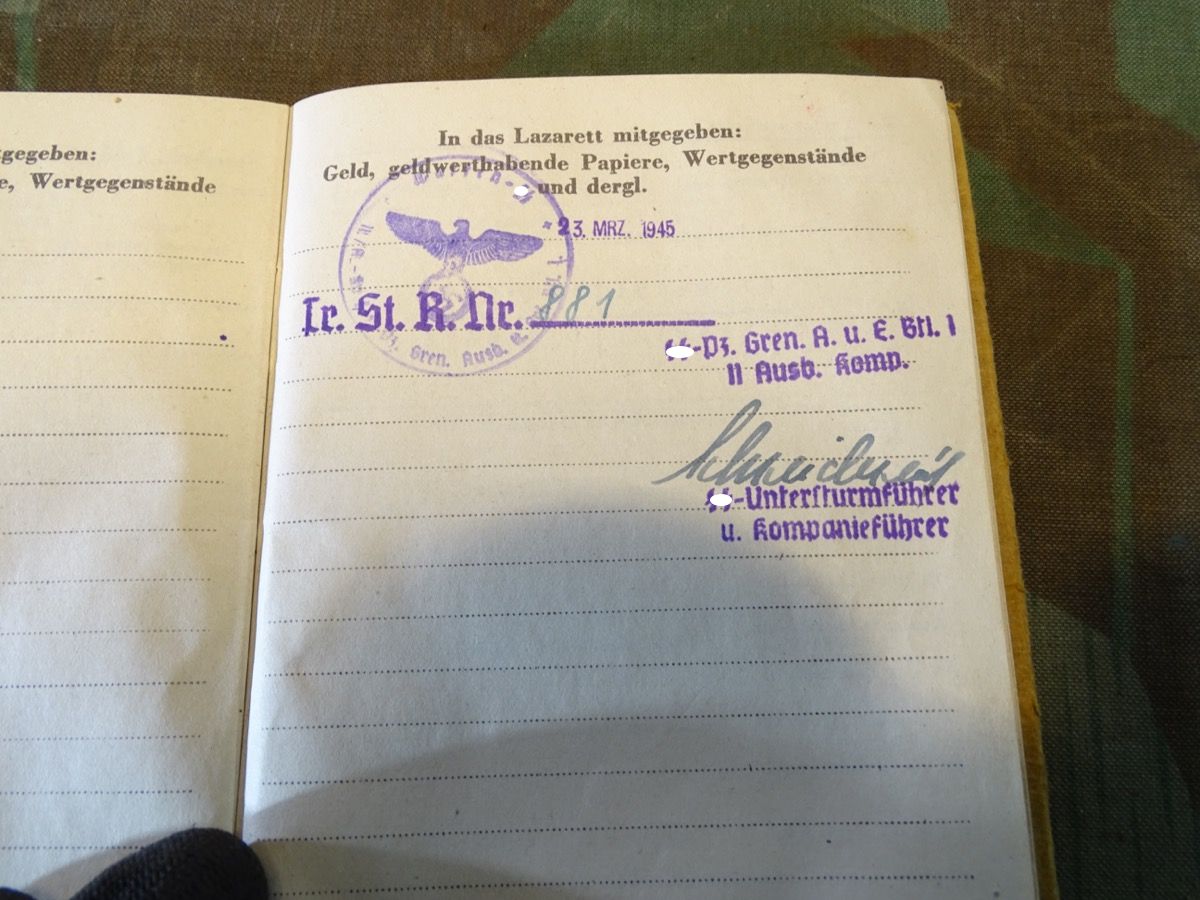 gegeben:
Wertgegenstände
In das Lazarett mitgegeben:
Geld, geldwerthabende Papiere, Wertgegenstände
und dergl.
23. MRZ. 1945
Tr. St. R. Nr. 881
-Pz. Gren. A. u. E. Btl. 1
11 Ausb. Komp.
-Untersturmführer
u. Kompanieführer
Pz. Gren. Ausb. u.